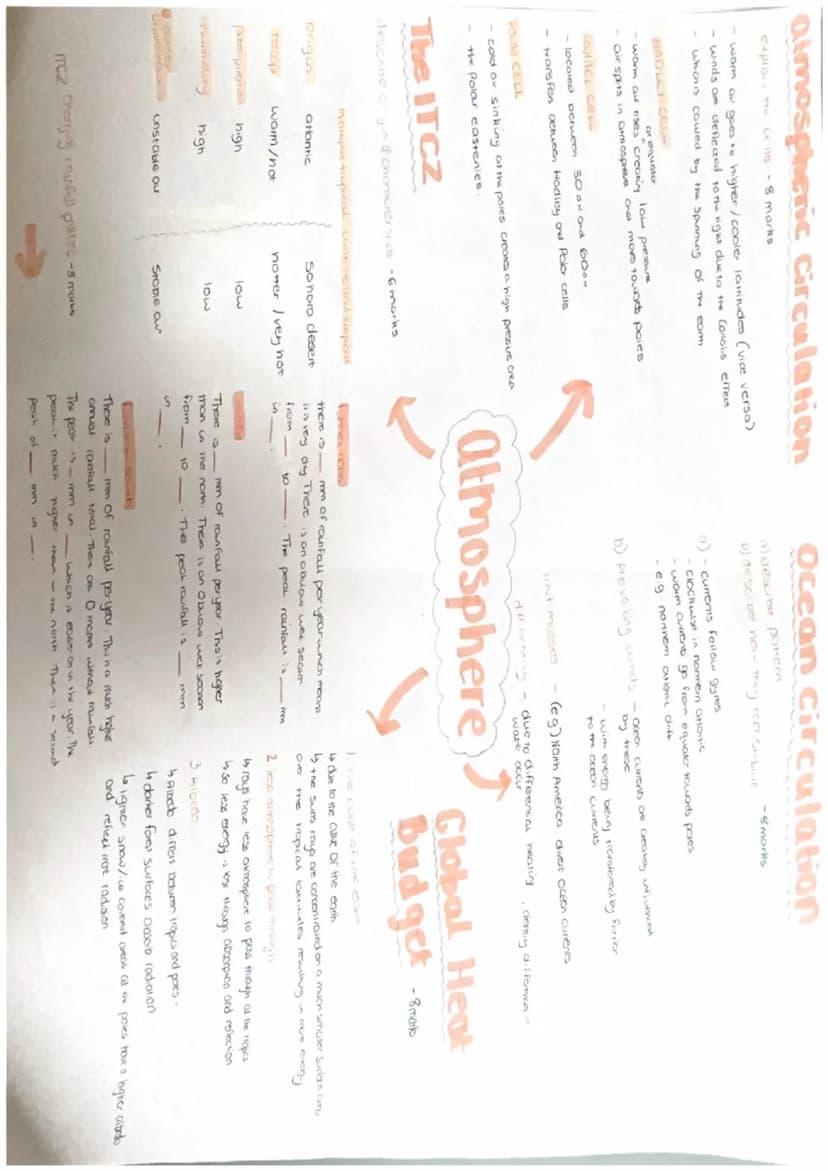 Atmospheric Circulation
explain the cells - 8 marks
- warm air goes to higher / cooler latitudes (vice versa)
- winds are deflected to the right due to the Coriolis effect
- which is caused by the spinning of the earth
HADLEY CELL
at equator
- warm air rises creating low pressure
- air splits in atmosphere and moves towards poles
FERREL CELL
- located between 30°N and 60°N
- transfer between Hadley and Polar cells
POLAR CELL
- cold air sinking at the poles creates a high pressure area
- the Polar easterlies.
Ocean Circulation
a) describe pattern
b) describe how they redistribute - 8 marks
a) - currents follow gyres
- clockwise in northern atlantic
- warm currents go from equator towards poles
- eg northern atlantic drift
b) prevailing winds - ocean currents are greatly influenced
by these
- with energy being transferred by friction
to the ocean currents
land masses - (eg) North America divert ocean currents
differing - due to differential heating, density differences in
water occur
Atmosphere
The ITCZ
describe origin & characteristics - 6 marks
maritime tropical continental tropical
origin atlantic sahara desert
temp warm / hot hotter / very hot
precipitation high low
humidity high low
unstable air stable air
ITCZ Changing rainfall patterns - 8 marks
further north
there is ___ mm of rainfall per year which means
it is very dry. There is an obvious wet season
from ___ to ___. The peak rainfall is ___ mm
in ___.
There is ___ mm of rainfall per year. This is higher
than in the north. There is an obvious wet season
from ___ to ___. The peak rainfall is ___ mm
in ___.
further south
There is ___ mm of rainfall per year. This is a much higher
annual rainfall total. There are 0 months without rainfall.
The peak is ___ mm in ___ which is earlier on in the year. The
peak is much higher than in the north. There is a second
peak of ___ mm in ___.
Global Heat
Budget - 8 marks
1. The curve of the Earth
↳ due to the curve of the earth
↳ the suns rays are concentrated on a much smaller surface area
over the tropical latitudes resulting in more energy
2. less atmosphere to pass through
↳ rays have less atmosphere to pass through at the tropics
↳ so less energy is lost through absorption and reflection
3. Albedo
↳ Albedo differs between tropics and poles -
↳ darker forest surfaces absorb radiation
↳ lighter snow / ice covered areas at the poles have a higher albedo
and reflect more radiation